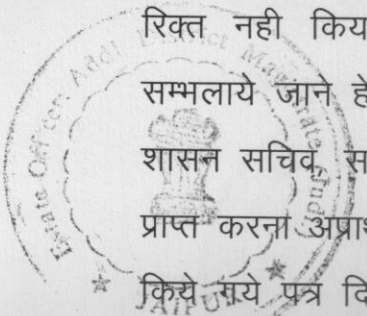 रिक्त नही किय
सम्भलाये जाने हे
शासन सचिव स
प्राप्त करना अप्रा
किये गये पत्र दि
Estate Officer, Addl District Magistrate
JAIPUR